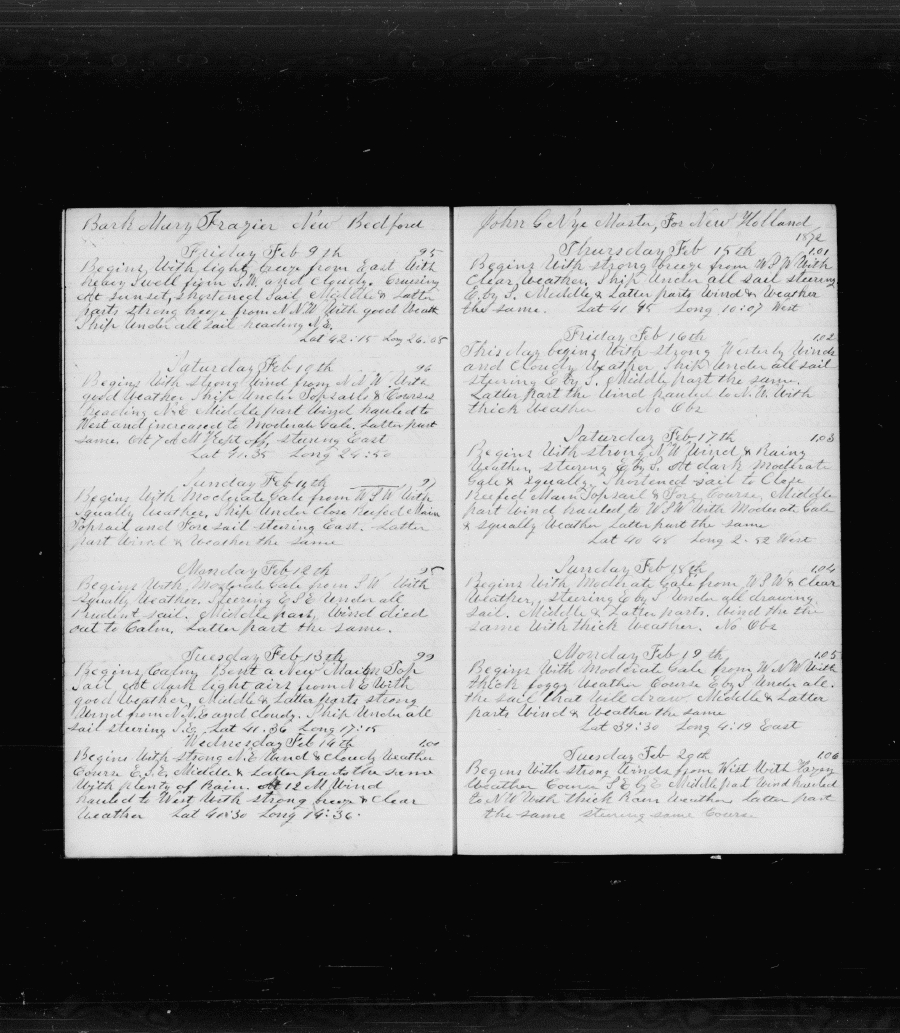 Bark Mary Frazier New Bedford
Friday Feb 9th 95
Begins With light breeze from East With
heavy Swell from S.W. and Cloudy. Cruising
At sunset, shortened Sail Middle & Latter
parts strong breeze from N.N.W. With good Weath
Ship Under all Sail heading N.E.
Lat 42:15 Long 26.05
Saturday Feb 10th 96
Begins With strong Wind from N.N.W. With
good Weather Ship Under Topsails & Courses
heading N.E. Middle part Wind hauled to
West and increased to Moderate Gale. Latter part
Same. At 7 A M Kept off, steering East
Lat 41.35 Long 24:50
Sunday Feb 11th 97
Begins With Moderate Gale from W.S.W. With
Squally Weather. Ship Under Close Reefed Main
Topsail and Fore sail steering East. Latter
part Wind & Weather the same
Monday Feb 12th
Begins With Moderate Gale from S.W. With
Squally Weather. Steering E.S.E. Under all
Prudent sail. Middle part Wind died
out to Calm. Latter part the same.
Tuesday Feb 13th 99
Begins Calm, Bent a New Main Top
Sail at dark light airs from N.E. With
good Weather. Middle & Latter parts strong
Wind from N.N.E. and cloudy. Ship Under all
sail steering S.E. Lat 41.36 Long 17:15
Wednesday Feb 14th
Begins With strong N.E. Wind & Cloudy Weather
Course E.S.E. Middle & Latter parts the same
With plenty of Rain. At 12 M Wind
hauled to West With strong breeze & Clear
Weather Lat 41:30 Long 14:36.
John C Nye Master, For New Holland
1872
Thursday Feb 15th 101
Begins With strong breeze from W.S.W. With
Clear Weather, Ship Under all sail steering
E. by S. Middle & Latter parts Wind & Weather
the same. Lat 41 45 Long 10:07 West
Friday Feb 16th 102
This day begins With strong Westerly Winds
and Cloudy Weather Ship Under all sail
steering E by S. Middle part the same.
Latter part the Wind hauled to N.W. With
thick Weather No Obs
Saturday Feb 17th 103
Begins With strong N.W. Wind & Rainy
Weather, steering E by S. At dark Moderate
Gale & squally, Shortened sail to Close
Reefed Main Topsail & Fore Course, Middle
part Wind hauled to W.S.W. With Moderate Gale
& squally Weather Latter part the same
Lat 40 48 Long 2.52 West
Sunday Feb 18th 104
Begins With Moderate Gale from W.S.W. & Clear
Weather, steering E by S. Under all drawing
sail. Middle & Latter parts. Wind the the
same With thick Weather. No Obs
Monday Feb 19th 105
Begins With Moderate Gale from W.N.W. With
thick foggy Weather Course E by S Under all
the sail that will draw Middle & Latter
parts Wind & Weather the same
Lat 39:30 Long 4:19 East
Tuesday Feb 20th 106
Begins With strong Winds from West With Hazy
Weather Course S.E. by E Middle part Wind hauled
to N W With thick Rain Weather Latter part
the same steering same Course